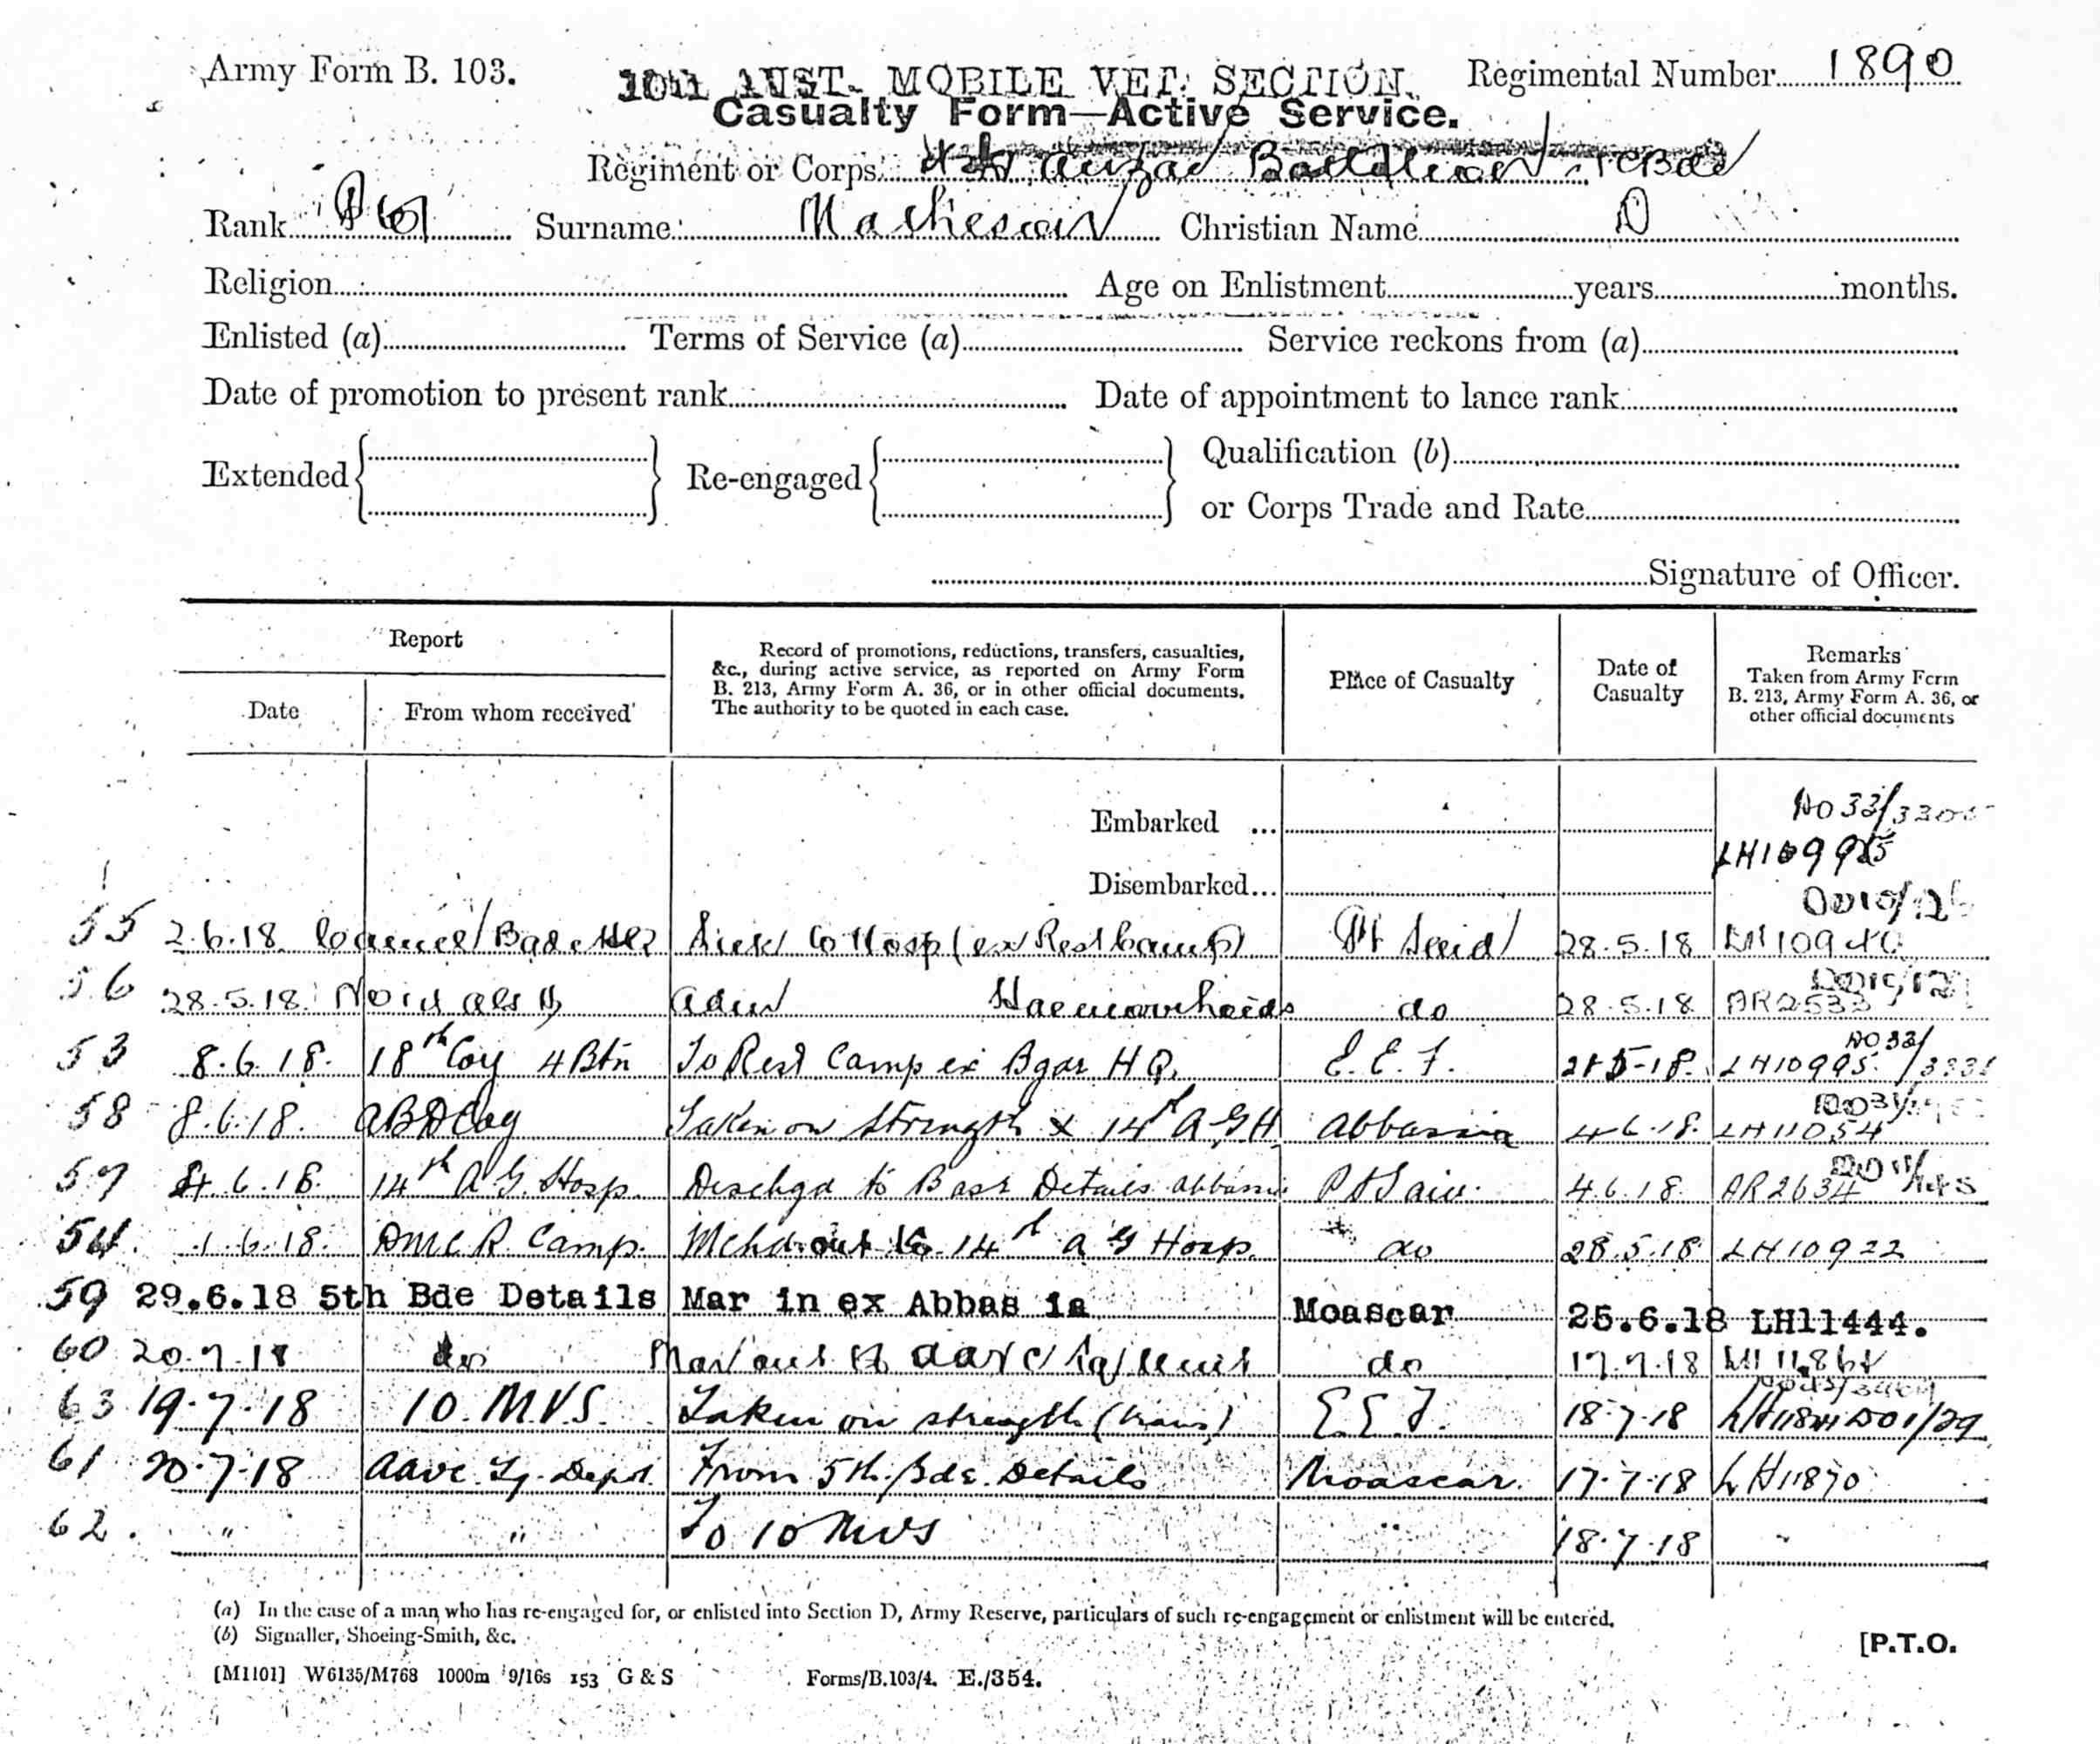 Army Form B. 103.
10th AUST. MOBILE VET. SECTION.
Regimental Number 1890
Casualty Form—Active Service.
Regiment or Corps Anzac Battalion
Rank Surname Christian Name D
Religion Age on Enlistment years months.
Enlisted (a) Terms of Service (a) Service reckons from (a)
Date of promotion to present rank Date of appointment to lance rank
Extended Re-engaged Qualification (b)
or Corps Trade and Rate
Signature of Officer.
Report
Date
From whom received
Record of promotions, reductions, transfers, casualties,
&c., during active service, as reported on Army Form
B. 213, Army Form A. 36, or in other official documents.
The authority to be quoted in each case.
Place of Casualty
Date of
Casualty
Remarks
Taken from Army Form
B. 213, Army Form A. 36, or
other official documents
Embarked ...
LH10995
Disembarked...
55 2.6.18. Camel Bgde Sick to Hosp (ex Rest Camp) Pt Said 28.5.18
56 28.5.18. Adm Haemorrhoids do 28.5.18 AR2533
53 8.6.18. 18th Coy 4 Btn To Rest Camp ex Bgde H Q. E.E.F. LH10995
58 8.6.18. ABD Coy Taken on Strength x 14th A G H Abbassia 4.6.18. LH11054
57 4.6.18. 14th A G. Hosp. Dischgd to Base Details Abbassia Pt Said 4.6.18. AR2634
54. 1.6.18. DMC R. Camp. Mchd out to 14th A G Hosp. do 28.5.18 LH10922
59 29.6.18 5th Bde Details Mar in ex Abbas ia Moascar 25.6.18 LH11444.
60 20.7.18 do Mar out to AAVC do 17.7.18
63 19.7.18 10. M.V.S. Taken on strength (trans) E.E.F. 18.7.18
61 20.7.18 AAVC. Tg. Depot. From 5th. Bde. Details Moascar. 17.7.18 LH11870
62. " " To 10 MVS " 18.7.18 "
(a) In the case of a man who has re-engaged for, or enlisted into Section D, Army Reserve, particulars of such re-engagement or enlistment will be entered.
(b) Signaller, Shoeing-Smith, &c.
[P.T.O.
[M1101] W6135/M768 1000m 9/16s 153 G & S Forms/B.103/4. E./354.